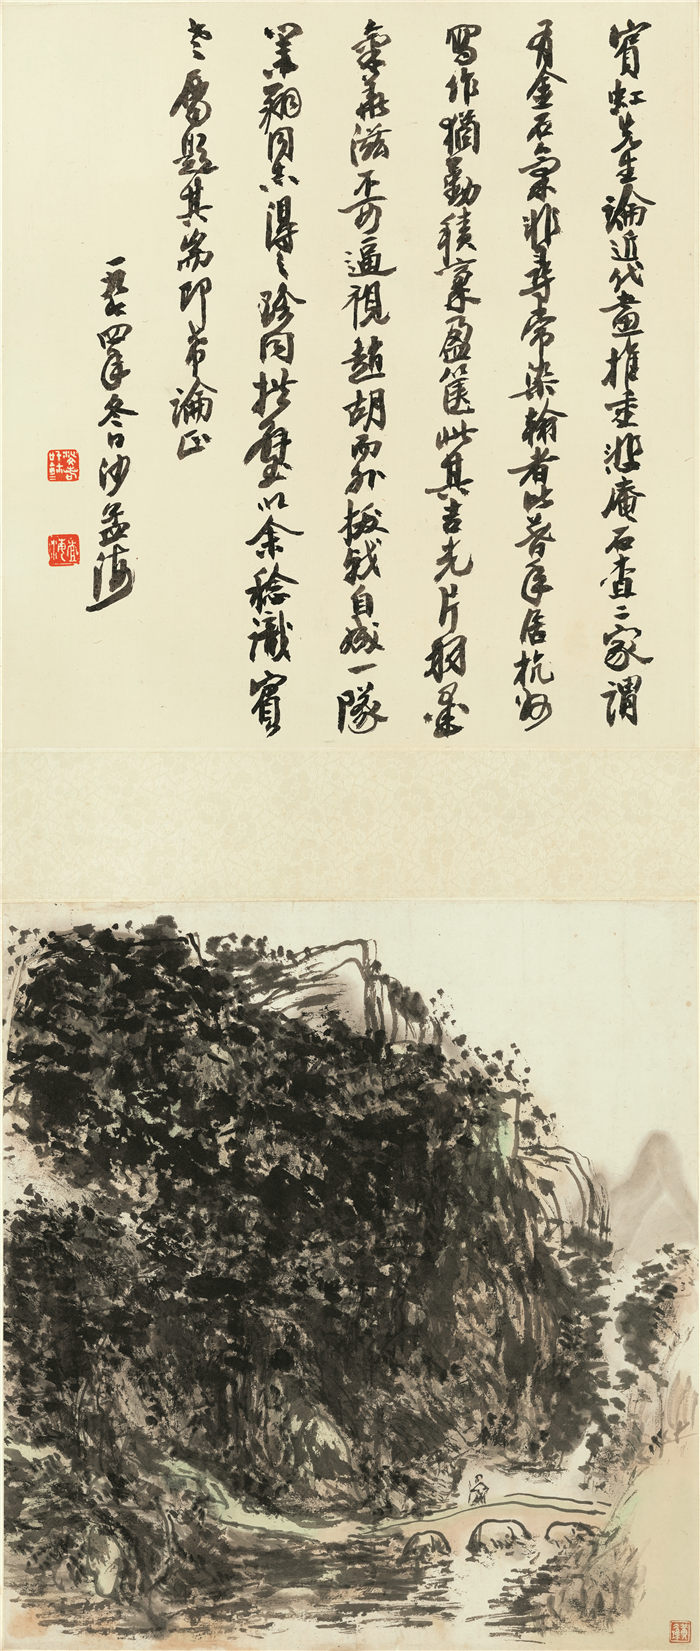 賓虹先生論近代畫推重悲庵石查二家謂
有金石氣非尋常染翰者比暮年居杭州
寫作猶勤積稾盈篋此其吉光片羽墨
氣華滋不可逼視趙胡而外拔戟自成一隊
業翔同志得之珍同拱璧以余稔識賓
老屬題其耑即希論正
一九六四年冬日沙孟海